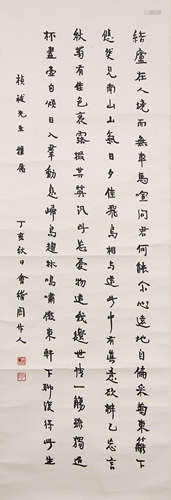 結廬在人境而無車馬喧問君何能尔心遠地自偏采菊東籬下
悠然見南山山氣日夕佳飛鳥相與還此中有真意欲辨已忘言
秋菊有佳色裛露掇其英汎此忘憂物遠我遺世情一觴雖獨進
杯盡壺自傾日入羣動息歸鳥趨林鳴嘯傲東軒下聊復得此生
先生 雅屬
丁亥秋日會稽周作人